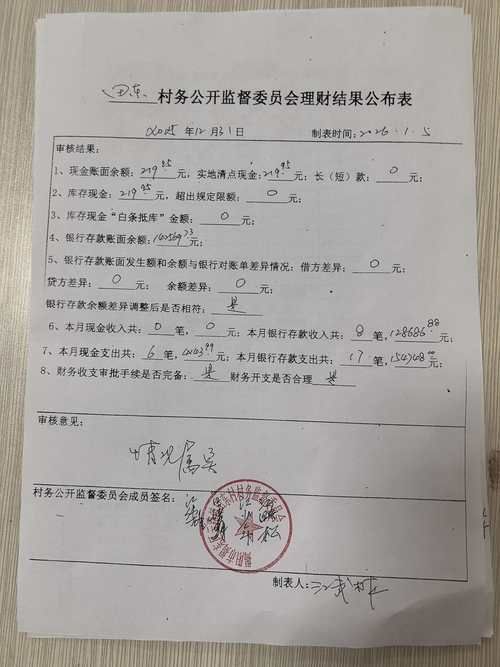 田东 村务公开监督委员会理财结果公布表
2025 年12月31日 制表时间：2026.1.5
审核结果：
1、现金账面余额：219.95元，实地清点现金：219.95元；长（短）款：0元；
2、库存现金：219.95元，超出规定限额：0元；
3、库存现金“白条抵库”金额：0元；
4、银行存款账面余额：元；
5、银行存款账面发生额和余额与银行对账单差异情况：借方差异：0元；
贷方差异：0元； 余额差异：0元；
银行存款余额差异调整后是否相符：是
6、本月现金收入共：0笔，0元；本月银行存款收入共：8笔，128686.88元；
7、本月现金支出共：6笔，元；本月银行存款支出共：17笔，元；
8、财务收支审批手续是否完备：是 财务开支是否合理 是
审核意见：
情况属实
村务公开监督委员会成员签名：
村务监督委员会
制表人：